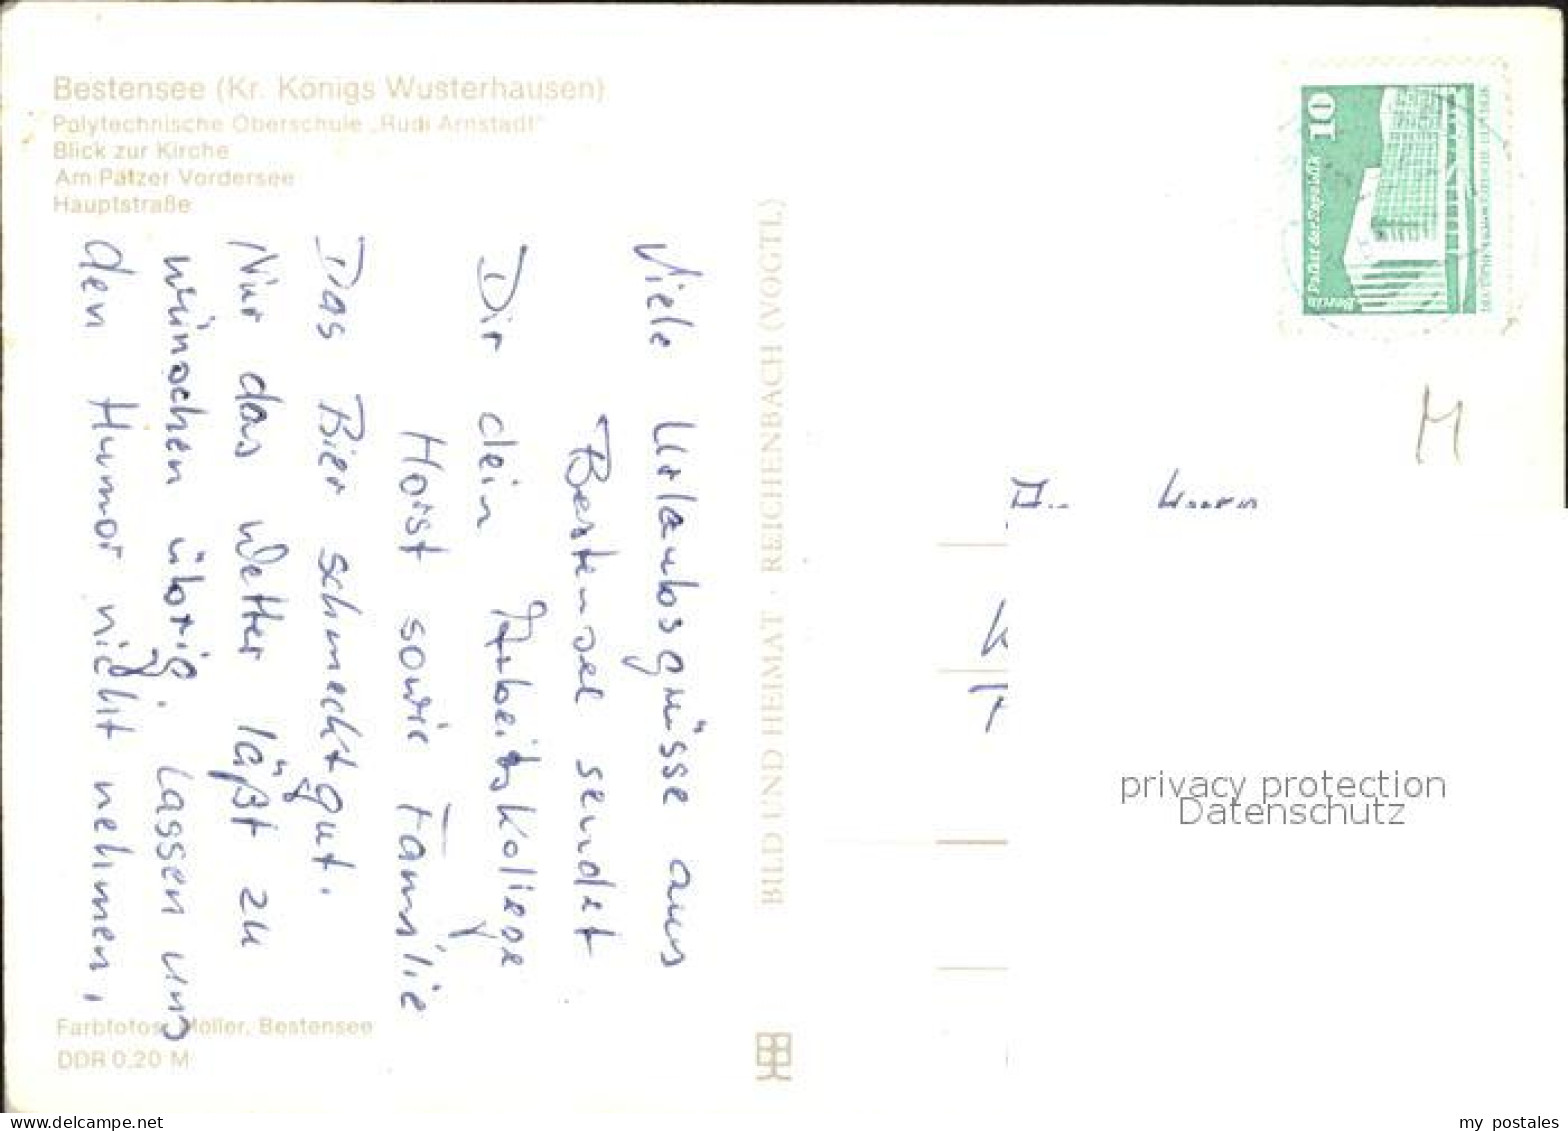 Bestensee (Kr. Königs Wusterhausen)
Polytechnische Oberschule „Rudi Arnstadt"
Blick zur Kirche
Am Pätzer Vordersee
Hauptstraße
Viele Urlaubsgrüsse aus
Bestensee sendet
Dir dein Arbeitskollege
Horst sowie Familie
Das Bier schmeckt gut.
Nur das Wetter läßt zu
wünschen übrig. Lassen uns
den Humor nicht nehmen,
Farbfotos: Möller, Bestensee
DDR 0,20 M
BILD UND HEIMAT · REICHENBACH (VOGTL)
10
Berlin Palast der Republik
M
privacy protection
Datenschutz
www.delcampe.net
my_postales